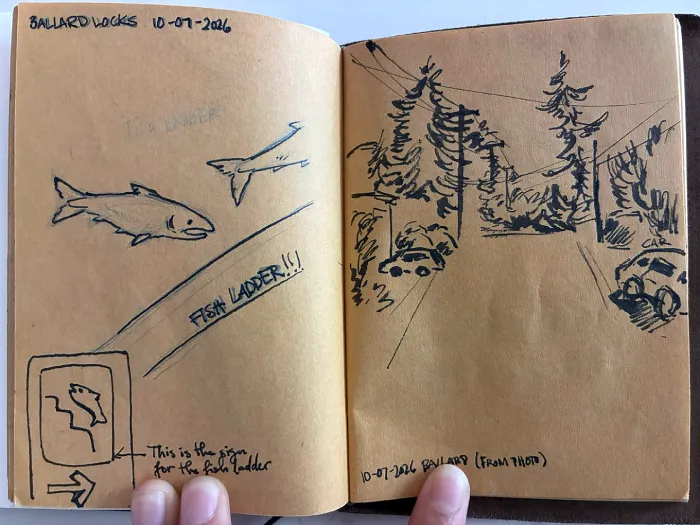 BALLARD LOCKS 10-07-2026
FISH LADDER
FISH LADDER!!!
This is the sign
for the fish ladder
10-07-2026 BALLARD (FROM PHOTO)